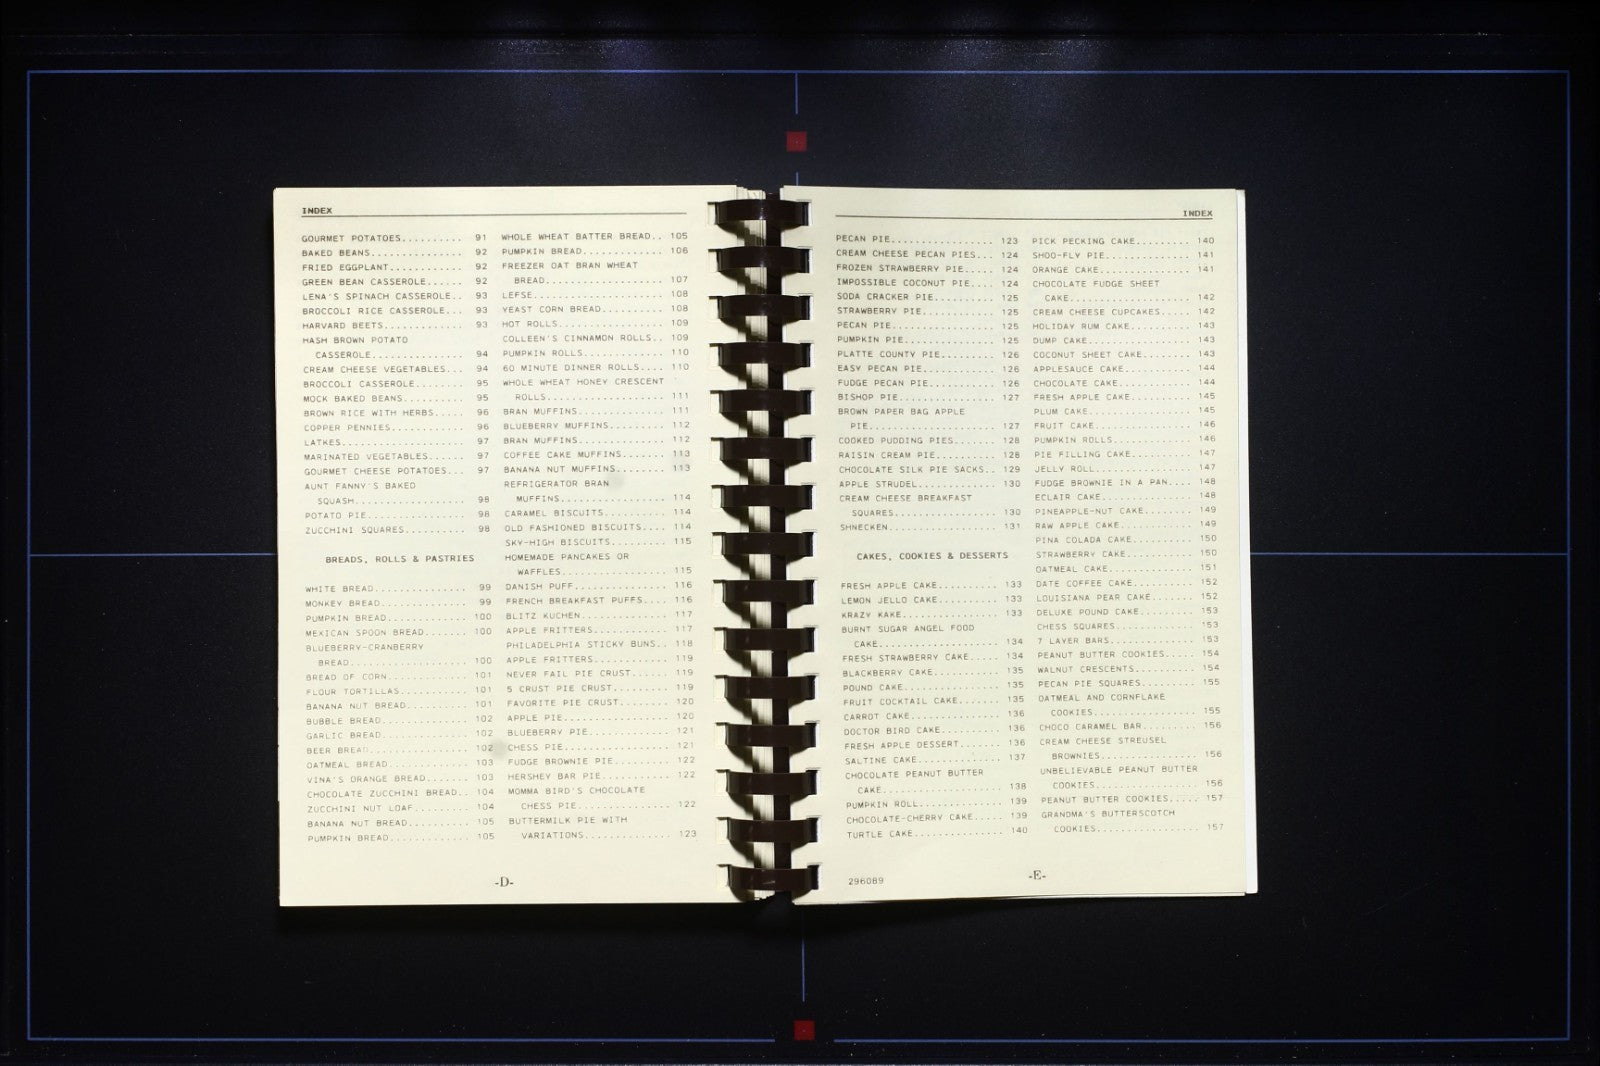 INDEX
GOURMET POTATOES.......... 91
BAKED BEANS............... 92
FRIED EGGPLANT............ 92
GREEN BEAN CASSEROLE...... 92
LENA'S SPINACH CASSEROLE.. 93
BROCCOLI RICE CASSEROLE... 93
HARVARD BEETS............. 93
HASH BROWN POTATO
CASSEROLE............... 94
CREAM CHEESE VEGETABLES... 94
BROCCOLI CASSEROLE........ 95
MOCK BAKED BEANS.......... 95
BROWN RICE WITH HERBS..... 96
COPPER PENNIES............ 96
LATKES.................... 97
MARINATED VEGETABLES...... 97
GOURMET CHEESE POTATOES... 97
AUNT FANNY'S BAKED
SQUASH.................. 98
POTATO PIE................ 98
ZUCCHINI SQUARES.......... 98
BREADS, ROLLS & PASTRIES
WHITE BREAD............... 99
MONKEY BREAD.............. 99
PUMPKIN BREAD............. 100
MEXICAN SPOON BREAD....... 100
BLUEBERRY-CRANBERRY
BREAD................... 100
BREAD OF CORN............. 101
FLOUR TORTILLAS........... 101
BANANA NUT BREAD.......... 101
BUBBLE BREAD.............. 102
GARLIC BREAD.............. 102
BEER BREAD................ 102
OATMEAL BREAD............. 103
VINA'S ORANGE BREAD....... 103
CHOCOLATE ZUCCHINI BREAD.. 104
ZUCCHINI NUT LOAF......... 104
BANANA NUT BREAD.......... 105
PUMPKIN BREAD............. 105
WHOLE WHEAT BATTER BREAD.. 105
PUMPKIN BREAD............. 106
FREEZER OAT BRAN WHEAT
BREAD................... 107
LEFSE..................... 108
YEAST CORN BREAD.......... 108
HOT ROLLS................. 109
COLLEEN'S CINNAMON ROLLS.. 109
PUMPKIN ROLLS............. 110
60 MINUTE DINNER ROLLS.... 110
WHOLE WHEAT HONEY CRESCENT
ROLLS................... 111
BRAN MUFFINS.............. 111
BLUEBERRY MUFFINS......... 112
BRAN MUFFINS.............. 112
COFFEE CAKE MUFFINS....... 113
BANANA NUT MUFFINS........ 113
REFRIGERATOR BRAN
MUFFINS................. 114
CARAMEL BISCUITS.......... 114
OLD FASHIONED BISCUITS.... 114
SKY-HIGH BISCUITS......... 115
HOMEMADE PANCAKES OR
WAFFLES................. 115
DANISH PUFF............... 116
FRENCH BREAKFAST PUFFS.... 116
BLITZ KUCHEN.............. 117
APPLE FRITTERS............ 117
PHILADELPHIA STICKY BUNS.. 118
APPLE FRITTERS............ 119
NEVER FAIL PIE CRUST...... 119
5 CRUST PIE CRUST......... 119
FAVORITE PIE CRUST........ 120
APPLE PIE................. 120
BLUEBERRY PIE............. 121
CHESS PIE................. 121
FUDGE BROWNIE PIE......... 122
HERSHEY BAR PIE........... 122
MOMMA BIRD'S CHOCOLATE
CHESS PIE............... 122
BUTTERMILK PIE WITH
VARIATIONS.............. 123
-D-
INDEX
PECAN PIE................. 123
CREAM CHEESE PECAN PIES... 124
FROZEN STRAWBERRY PIE..... 124
IMPOSSIBLE COCONUT PIE.... 124
SODA CRACKER PIE.......... 125
STRAWBERRY PIE............ 125
PECAN PIE................. 125
PUMPKIN PIE............... 125
PLATTE COUNTY PIE......... 126
EASY PECAN PIE............ 126
FUDGE PECAN PIE........... 126
BISHOP PIE................ 127
BROWN PAPER BAG APPLE
PIE..................... 127
COOKED PUDDING PIES....... 128
RAISIN CREAM PIE.......... 128
CHOCOLATE SILK PIE SACKS.. 129
APPLE STRUDEL............. 130
CREAM CHEESE BREAKFAST
SQUARES................. 130
SHNECKEN.................. 131
CAKES, COOKIES & DESSERTS
FRESH APPLE CAKE.......... 133
LEMON JELLO CAKE.......... 133
KRAZY KAKE................ 133
BURNT SUGAR ANGEL FOOD
CAKE.................... 134
FRESH STRAWBERRY CAKE..... 134
BLACKBERRY CAKE........... 135
POUND CAKE................ 135
FRUIT COCKTAIL CAKE....... 135
CARROT CAKE............... 136
DOCTOR BIRD CAKE.......... 136
FRESH APPLE DESSERT....... 136
SALTINE CAKE.............. 137
CHOCOLATE PEANUT BUTTER
CAKE.................... 138
PUMPKIN ROLL.............. 139
CHOCOLATE-CHERRY CAKE..... 139
TURTLE CAKE............... 140
PICK PECKING CAKE......... 140
SHOO-FLY PIE.............. 141
ORANGE CAKE............... 141
CHOCOLATE FUDGE SHEET
CAKE.................... 142
CREAM CHEESE CUPCAKES..... 142
HOLIDAY RUM CAKE.......... 143
DUMP CAKE................. 143
COCONUT SHEET CAKE........ 143
APPLESAUCE CAKE........... 144
CHOCOLATE CAKE............ 144
FRESH APPLE CAKE.......... 145
PLUM CAKE................. 145
FRUIT CAKE................ 146
PUMPKIN ROLLS............. 146
PIE FILLING CAKE.......... 147
JELLY ROLL................ 147
FUDGE BROWNIE IN A PAN.... 148
ECLAIR CAKE............... 148
PINEAPPLE-NUT CAKE........ 149
RAW APPLE CAKE............ 149
PINA COLADA CAKE.......... 150
STRAWBERRY CAKE........... 150
OATMEAL CAKE.............. 151
DATE COFFEE CAKE.......... 152
LOUISIANA PEAR CAKE....... 152
DELUXE POUND CAKE......... 153
CHESS SQUARES............. 153
7 LAYER BARS.............. 153
PEANUT BUTTER COOKIES..... 154
WALNUT CRESCENTS.......... 154
PECAN PIE SQUARES......... 155
OATMEAL AND CORNFLAKE
COOKIES................. 155
CHOCO CARAMEL BAR......... 156
CREAM CHEESE STREUSEL
BROWNIES................ 156
UNBELIEVABLE PEANUT BUTTER
COOKIES................. 156
PEANUT BUTTER COOKIES..... 157
GRANDMA'S BUTTERSCOTCH
COOKIES................. 157
296089
-E-